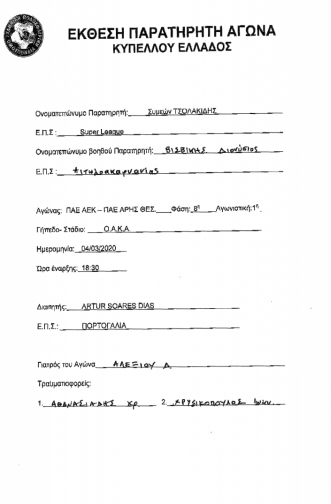 ΕΚΘΕΣΗ ΠΑΡΑΤΗΡΗΤΗ ΑΓΩΝΑ
ΚΥΠΕΛΛΟΥ ΕΛΛΑΔΟΣ
Ονοματεπώνυμο Παρατηρητή: Συμεών ΤΣΟΛΑΚΙΔΗΣ
Ε.Π.Σ: Super League
Ονοματεπώνυμο βοηθού Παρατηρητή: ΒΙΣΒΙΚΗΣ Διονύσιος
Ε.Π.Σ: Αιτωλοακαρνανίας
Αγώνας: ΠΑΕ ΑΕΚ – ΠΑΕ ΑΡΗΣ ΘΕΣ. Φάση: 8η Αγωνιστική: 1η
Γήπεδο- Στάδιο: Ο.Α.Κ.Α.
Ημερομηνία: 04/03/2020
Ώρα έναρξης: 18:30
Διαιτητής: ARTUR SOARES DIAS
Ε.Π.Σ.: ΠΟΡΤΟΓΑΛΙΑ
Γιατρός του Αγώνα ΑΛΕΞΙΟΥ Δ.
Τραυματιοφορείς:
1. ΑΘΑΝΑΣΙΑΔΗΣ Χρ. 2. ΧΡΥΣΙΚΟΠΟΥΛΟΣ